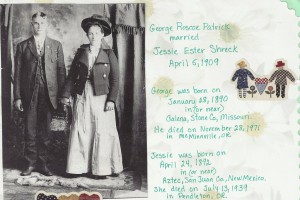 George Roscoe Patrick
married
Jessie Ester Shreck
April 5, 1909
George was born on
January 28, 1890
in (or near)
Galena, Stone Co, Missouri.
He died on November 28, 1971
in McMinnville, OR.
Jessie was born on
April 24, 1892
in (or near)
Aztec, San Juan Co, New Mexico
She died on July 13, 1939
in Pendleton, OR.